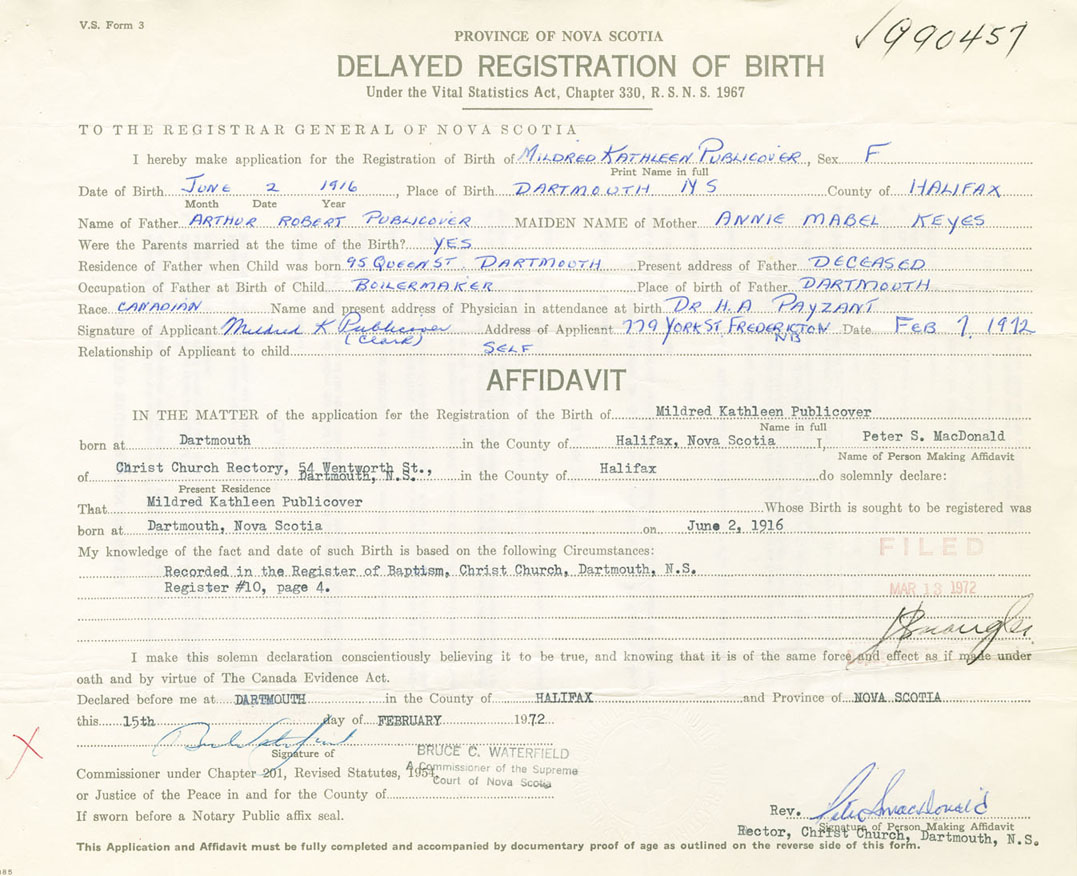 V.S. Form 3
√990457
PROVINCE OF NOVA SCOTIA
DELAYED REGISTRATION OF BIRTH
Under the Vital Statistics Act, Chapter 330, R. S. N. S. 1967
TO THE REGISTRAR GENERAL OF NOVA SCOTIA
I hereby make application for the Registration of Birth of MILDRED KATHLEEN PUBLICOVER, Sex F
Print Name in full
Date of Birth JUNE 2 1916, Place of Birth DARTMOUTH NS County of HALIFAX
Month Date Year
Name of Father ARTHUR ROBERT PUBLICOVER MAIDEN NAME of Mother ANNIE MABEL KEYES
Were the Parents married at the time of the Birth? YES
Residence of Father when Child was born 95 QUEEN ST. DARTMOUTH Present address of Father DECEASED
Occupation of Father at Birth of Child BOILERMAKER Place of birth of Father DARTMOUTH
Race CANADIAN Name and present address of Physician in attendance at birth DR H. A PAYZANT
Signature of Applicant Mildred K Publicover Address of Applicant 779 YORK ST. FREDERICTON Date FEB 7, 1972
(Clark) NB
Relationship of Applicant to child SELF
AFFIDAVIT
IN THE MATTER of the application for the Registration of the Birth of Mildred Kathleen Publicover
Name in full
born at Dartmouth in the County of Halifax, Nova Scotia I, Peter S. MacDonald
Name of Person Making Affidavit
of Christ Church Rectory, 54 Wentworth St., in the County of Halifax do solemnly declare:
Dartmouth, N.S.
Present Residence
That Mildred Kathleen Publicover Whose Birth is sought to be registered was
born at Dartmouth, Nova Scotia on June 2, 1916
My knowledge of the fact and date of such Birth is based on the following Circumstances:
FILED
Recorded in the Register of Baptism, Christ Church, Dartmouth, N.S.
Register #10, page 4.
MAR 13 1972
I make this solemn declaration conscientiously believing it to be true, and knowing that it is of the same force and effect as if made under
oath and by virtue of The Canada Evidence Act.
Declared before me at DARTMOUTH in the County of HALIFAX and Province of NOVA SCOTIA
this 15th day of FEBRUARY 1972
Signature of
BRUCE C. WATERFIELD
A Commissioner of the Supreme
Court of Nova Scotia
Commissioner under Chapter 201, Revised Statutes, 1954
or Justice of the Peace in and for the County of
If sworn before a Notary Public affix seal.
Rev. Peter S MacDonald
Signature of Person Making Affidavit
Rector, Christ Church, Dartmouth, N.S.
This Application and Affidavit must be fully completed and accompanied by documentary proof of age as outlined on the reverse side of this form.